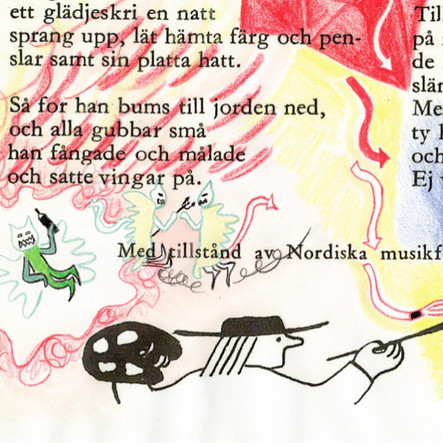 ett glädjeskri en natt
sprang upp, lät hämta färg och pen-
slar samt sin platta hatt.
Så for han bums till jorden ned,
och alla gubbar små
han fångade och målade
och satte vingar på.
Till
på
de
Me
ty
och
Ej
Med tillstånd av Nordiska musikf